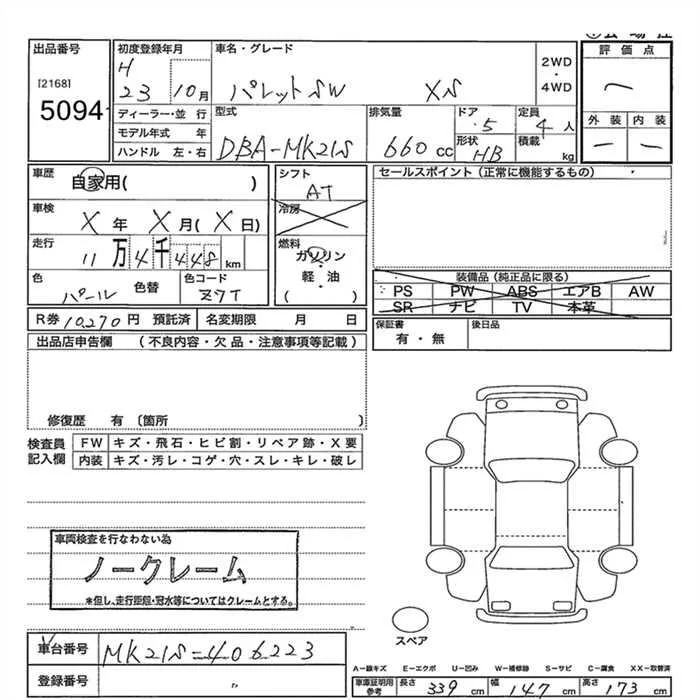 出品番号
[2168]
5094
初度登録年月
H
23 10月
ディーラー・並行
モデル年式 年
ハンドル 左・右
車名・グレード
パレットSW XS
2WD
・
4WD
型式
DBA-MK21S
排気量
660 cc
ドア
5
形状
HB
定員
4 人
積載
kg
評価点
外装 内装
車歴
自家用( )
車検
X 年 X 月(X 日)
走行
11 万 4 千 448 km
色
パール
色替
色コード
Z7T
シフト
AT
冷房
燃料
ガソリン
軽・油
( )
セールスポイント(正常に機能するもの)
装備品(純正品に限る)
PS PW ABS エアB AW
SR ナビ TV 本革
R券 10,270 円 預託済 名変期限 月 日
保証書
有・無
後日品
出品店申告欄 (不良内容・欠品・注意事項等記載)
修復歴 有 〔箇所 〕
検査員
記入欄
FW キズ・飛石・ヒビ割・リペア跡・X要
内装 キズ・汚レ・コゲ・穴・スレ・キレ・破レ
車両検査を行なわない為
ノークレーム
*但し、走行距離・冠水等についてはクレームとする。
スペア
車台番号
MK21S-406223
登録番号
A-線キズ E-エクボ U-凹み W-補修跡 S-サビ C-腐食 XX-取替済
車庫証明用
参考
長さ 339 cm 幅 147 cm 高さ 173 cm